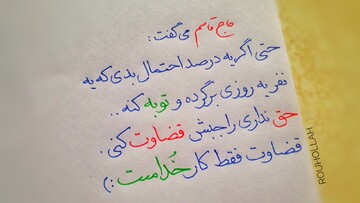 حاج قاسم می‌گفت:
حتی اگر یه درصد احتمال بدی که یه
نفر یه روزی برگرده و توبه کنه..
حق نداری راجبش قضاوت کنی.
قضاوت فقط کار خُداست :)
ROUHOLLAH